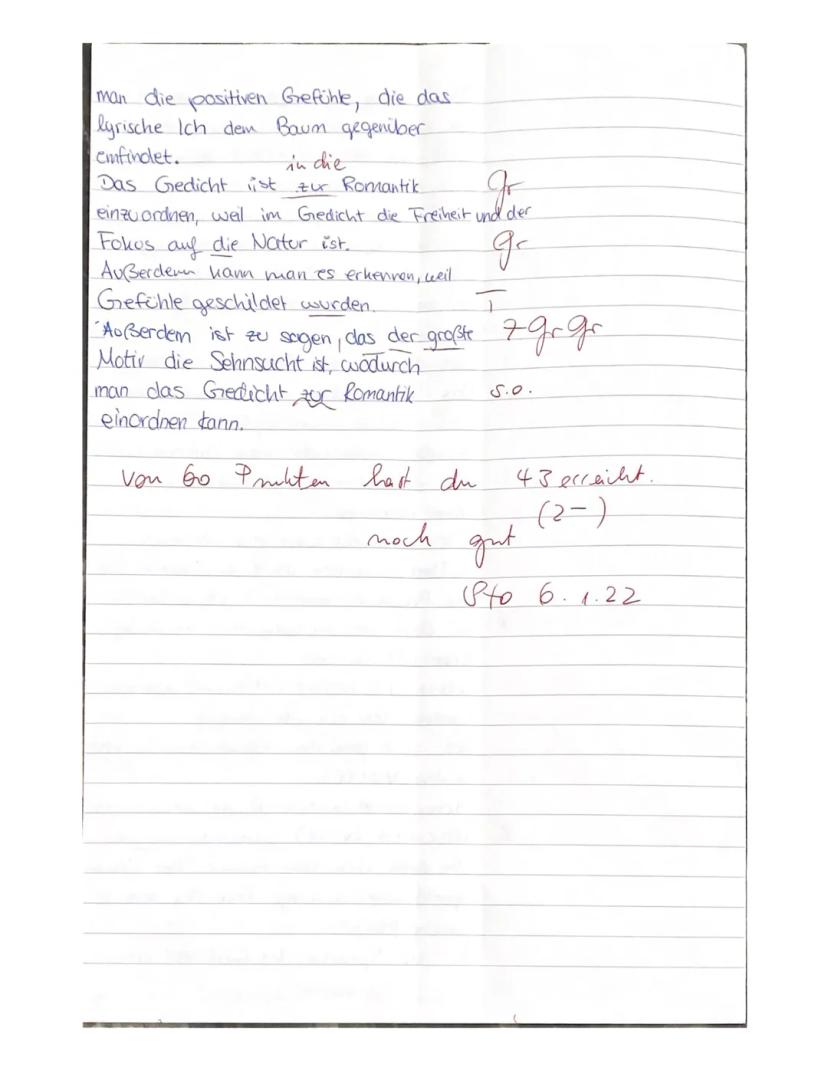 man die positiven Gefühle, die das
lyrische Ich dem Baum gegenüber
emfindet.
in die
Das Gedicht ist zur Romantik gr
einzuordnen, weil im Gedicht die Freiheit und der
Fokus auf die Natur ist. gr
Außerdem kann man es erkennen, weil
Gefühle geschildet wurden. T
Außerdem ist zu sagen, das der großte 7 gr gr
Motiv die Sehnsucht ist, wodurch
man das Gedicht zur Romantik s.o.
einordnen kann.
Von 60 Punkten hast du 43 erreicht.
(2-)
noch gut
Sto 6.1.22